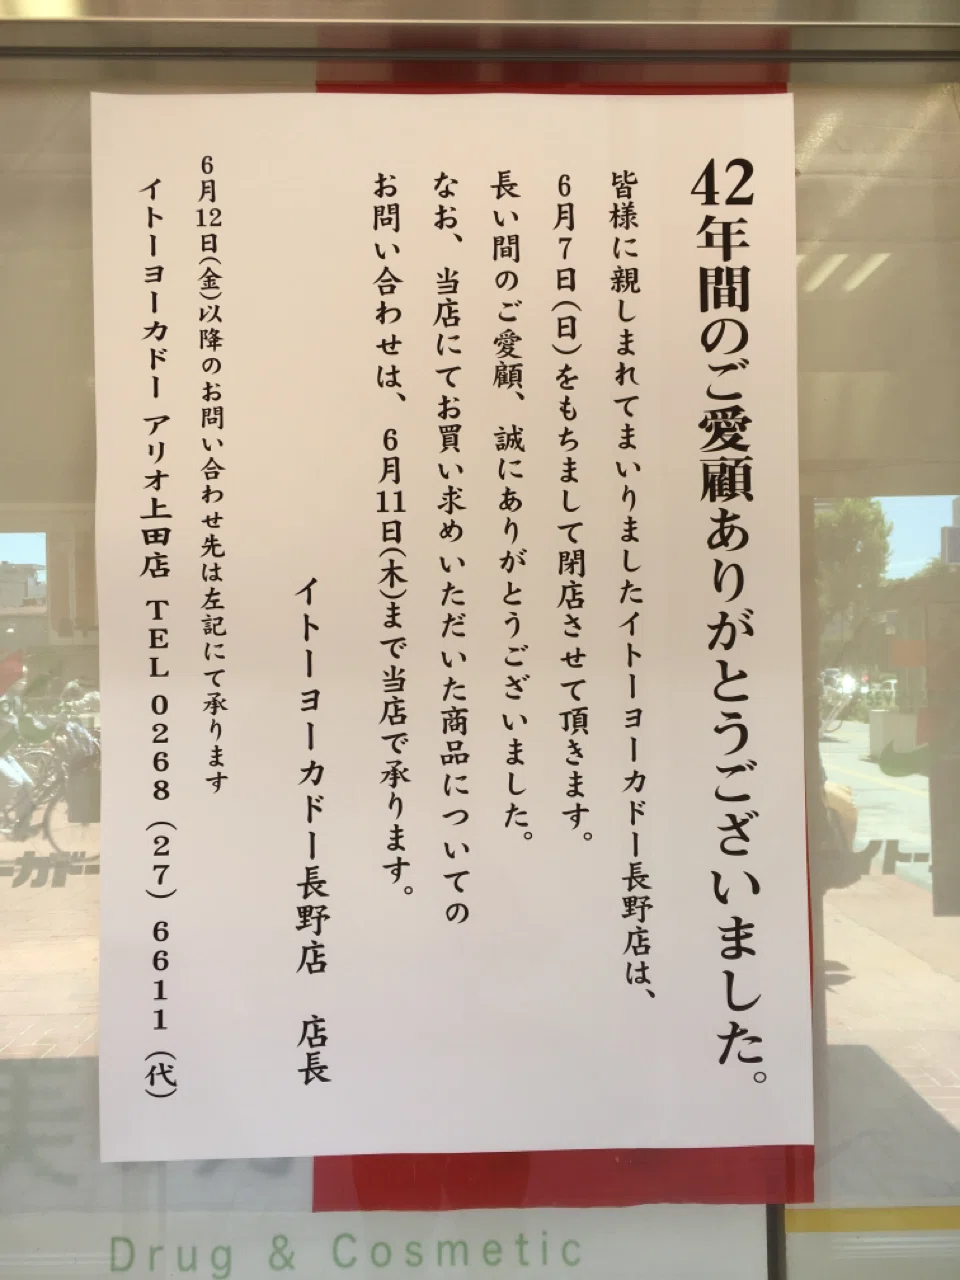 42年間のご愛顧ありがとうございました。
皆様に親しまれてまいりましたイトーヨーカドー長野店は、
6月7日(日)をもちまして閉店させて頂きます。
長い間のご愛顧、誠にありがとうございました。
なお、当店にてお買い求めいただいた商品についての
お問い合わせは、6月11日(木)まで当店で承ります。
イトーヨーカドー長野店 店長
6月12日(金)以降のお問い合わせ先は左記にて承ります
イトーヨーカドー アリオ上田店 TEL 0268(27)6611(代)
Drug & Cosmetic